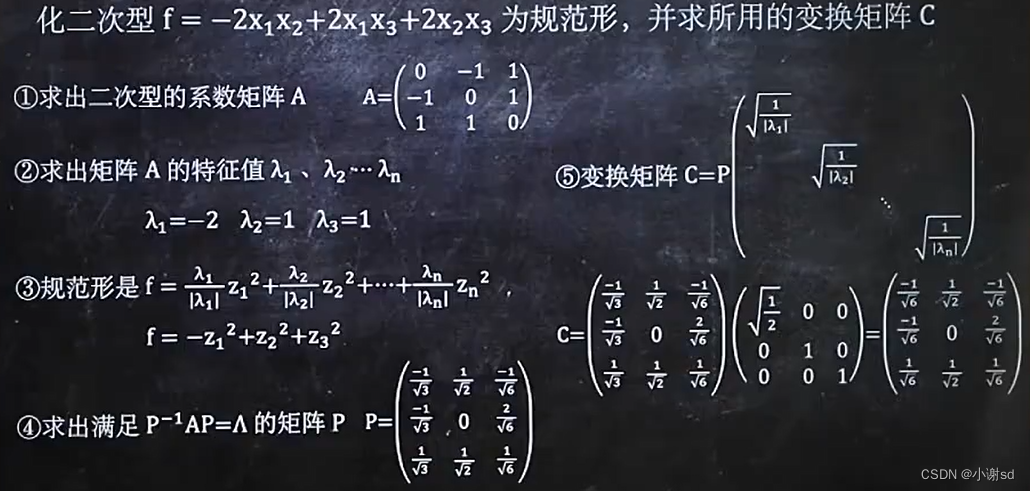 化二次型 f = −2x₁x₂+2x₁x₃+2x₂x₃ 为规范形，并求所用的变换矩阵 C
①求出二次型的系数矩阵 A A=
0 −1 1
−1 0 1
1 1 0
②求出矩阵 A 的特征值 λ₁ 、λ₂⋯ λₙ
λ₁=−2 λ₂=1 λ₃=1
③规范形是 f = λ₁/|λ₁| z₁²+λ₂/|λ₂| z₂²+⋯+λₙ/|λₙ| zₙ² ，
f = −z₁²+z₂²+z₃²
④求出满足 P⁻¹AP=Λ 的矩阵 P P=
−1/√3 1/√2 −1/√6
−1/√3 0 2/√6
1/√3 1/√2 1/√6
⑤变换矩阵 C=P
√(1/|λ₁|)
√(1/|λ₂|)
⋱
√(1/|λₙ|)
C=
−1/√3 1/√2 −1/√6
−1/√3 0 2/√6
1/√3 1/√2 1/√6
√(1/2) 0 0
0 1 0
0 0 1
=
−1/√6 1/√2 −1/√6
−1/√6 0 2/√6
1/√6 1/√2 1/√6
CSDN @小谢sd